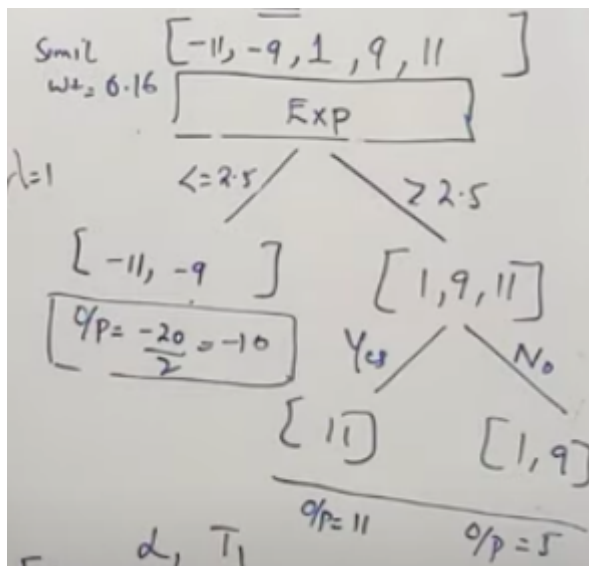 [-11, -9, 1, 9, 11 ]
wt= 0.16
Exp
λ=1
<=2.5
>2.5
[-11, -9 ]
[1, 9, 11]
O/P = -20/2 = -10
Yes
No
[11]
[1, 9]
O/P = 11
O/P = 5
α, T1